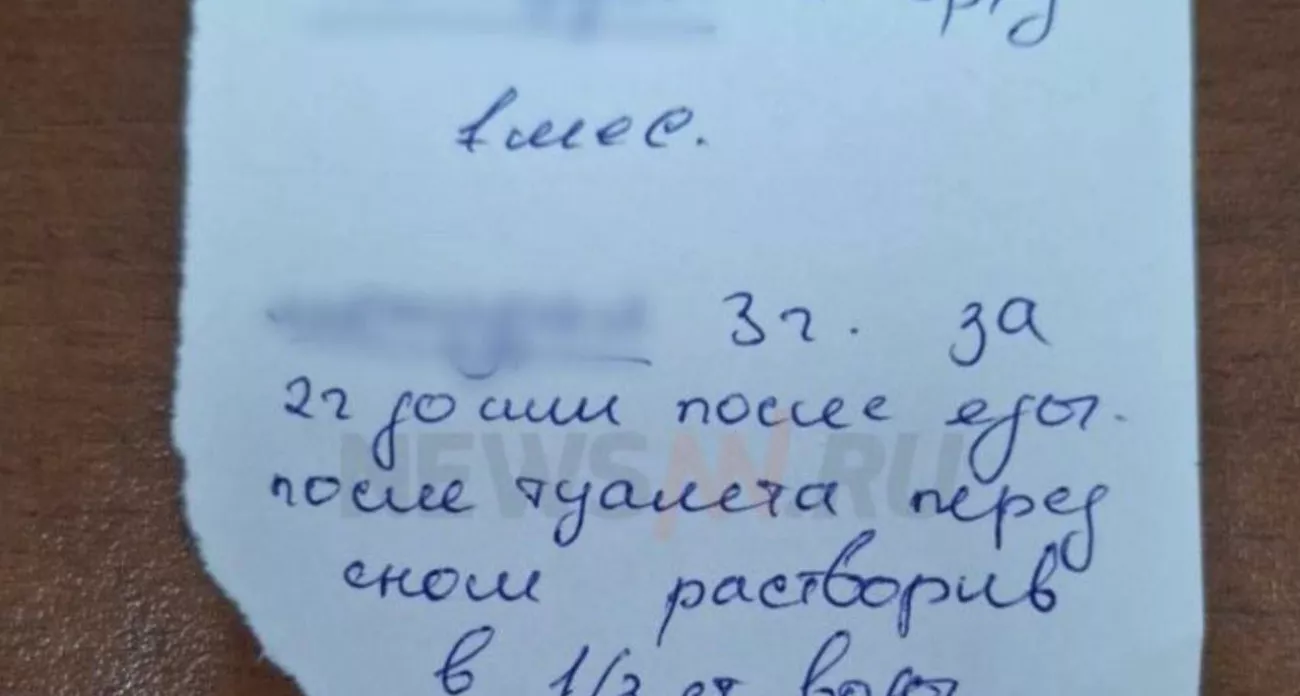 1 мес.
3 г. за
2 г до или после еды.
после туалета перед
сном растворив
в 1/2 ст воды
NEWSAN.RU